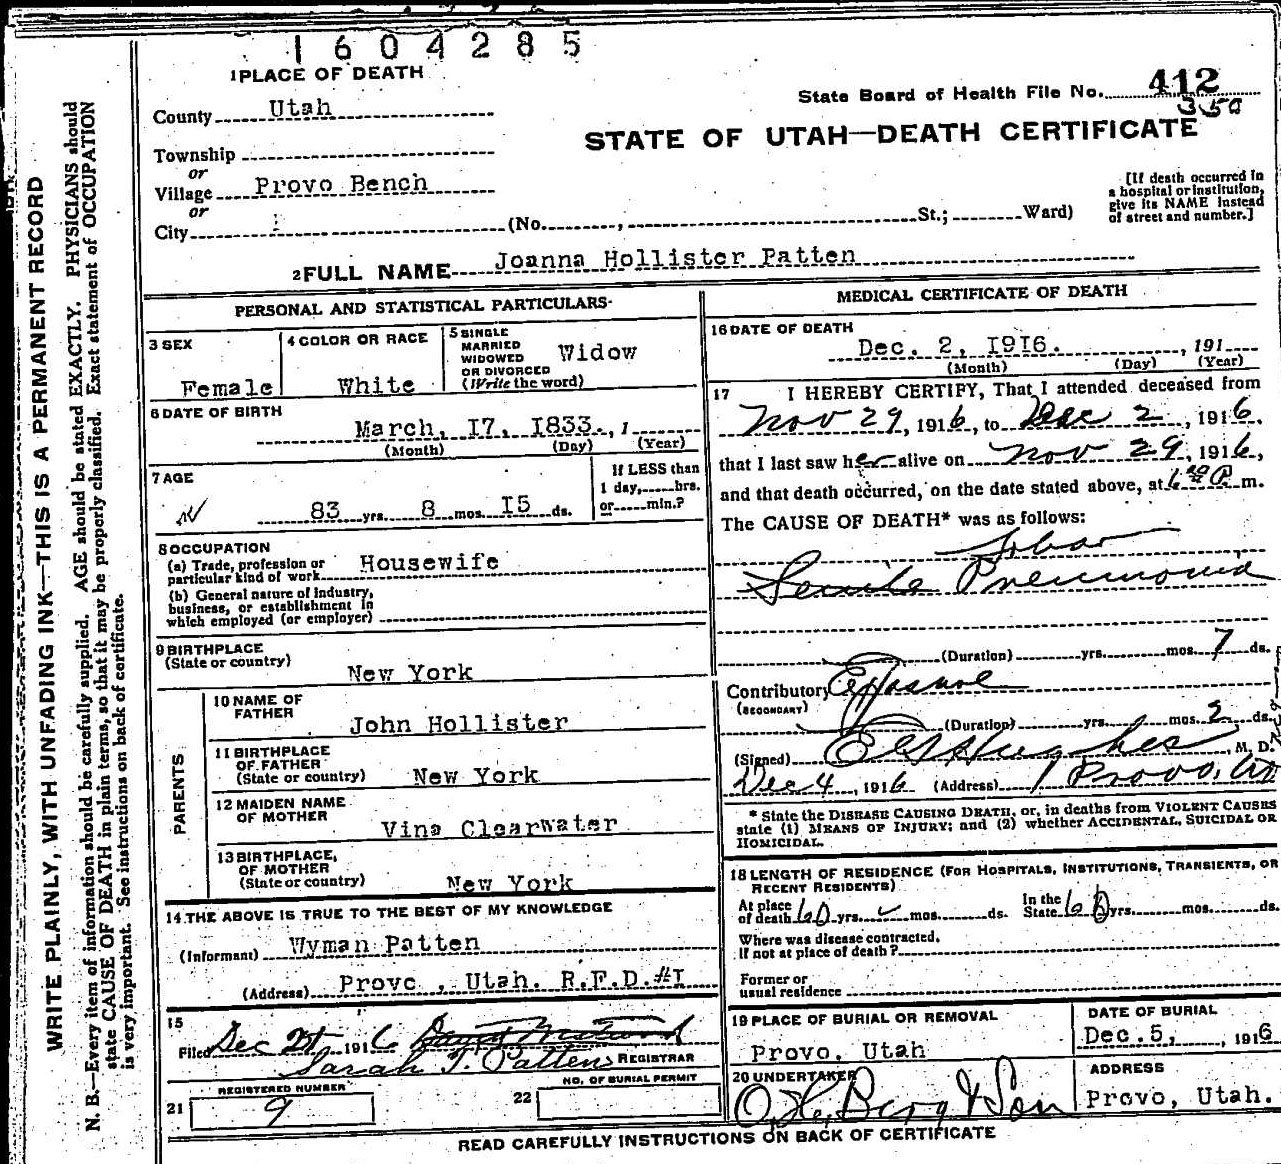 1604285
1 PLACE OF DEATH
State Board of Health File No. 412
350
County Utah
STATE OF UTAH—DEATH CERTIFICATE
Township
or
Village Provo Bench
or
City (No. , St.; Ward)
[If death occurred in
a hospital or institution,
give its NAME instead
of street and number.]
2 FULL NAME Joanna Hollister Patten
PERSONAL AND STATISTICAL PARTICULARS
3 SEX
Female
4 COLOR OR RACE
White
5 SINGLE
MARRIED
WIDOWED
OR DIVORCED
(Write the word)
Widow
6 DATE OF BIRTH
March, 17, 1833. , 1
(Month) (Day) (Year)
7 AGE
83 yrs. 8 mos. 15 ds.
If LESS than
1 day, hrs.
or min.?
8 OCCUPATION
(a) Trade, profession or
particular kind of work Housewife
(b) General nature of industry,
business, or establishment in
which employed (or employer)
9 BIRTHPLACE
(State or country)
New York
PARENTS
10 NAME OF
FATHER
John Hollister
11 BIRTHPLACE
OF FATHER
(State or country) New York
12 MAIDEN NAME
OF MOTHER
Vina Clearwater
13 BIRTHPLACE,
OF MOTHER
(State or country) New York
14 THE ABOVE IS TRUE TO THE BEST OF MY KNOWLEDGE
(Informant) Wyman Patten
(Address) Provo , Utah. R.F.D.#1
15
Filed Dec 1916
Sarah T. Patten REGISTRAR
REGISTERED NUMBER
21 9
NO. OF BURIAL PERMIT
22
MEDICAL CERTIFICATE OF DEATH
16 DATE OF DEATH
Dec. 2, 1916. , 191
(Month) (Day) (Year)
17 I HEREBY CERTIFY, That I attended deceased from
Nov 29, 1916, to Dec 2, 1916,
that I last saw her alive on Nov 29, 1916,
and that death occurred, on the date stated above, at 6 30 P. m.
The CAUSE OF DEATH* was as follows:
Lobar
Senile Pneumonia
(Duration) yrs. mos. 7 ds.
Contributory Exposure
(SECONDARY)
(Duration) yrs. mos. 2 ds.
(Signed) Hughes, M. D.
Dec 4, 1916 (Address) Provo, Ut
* State the DISEASE CAUSING DEATH, or, in deaths from VIOLENT CAUSES
state (1) MEANS OF INJURY; and (2) whether ACCIDENTAL, SUICIDAL OR
HOMICIDAL.
18 LENGTH OF RESIDENCE (FOR HOSPITALS, INSTITUTIONS, TRANSIENTS, OR
RECENT RESIDENTS)
At place
of death 60 yrs. mos. ds.
In the
State 60 yrs. mos. ds.
Where was disease contracted,
if not at place of death?
Former or
usual residence
19 PLACE OF BURIAL OR REMOVAL
Provo, Utah
DATE OF BURIAL
Dec. 5, , 1916
20 UNDERTAKER
O. H. Berg & Son
ADDRESS
Provo, Utah.
READ CAREFULLY INSTRUCTIONS ON BACK OF CERTIFICATE
WRITE PLAINLY, WITH UNFADING INK—THIS IS A PERMANENT RECORD
N. B.—Every item of information should be carefully supplied. AGE should be stated EXACTLY. PHYSICIANS should
state CAUSE OF DEATH in plain terms, so that it may be properly classified. Exact statement of OCCUPATION
is very important. See instructions on back of certificate.